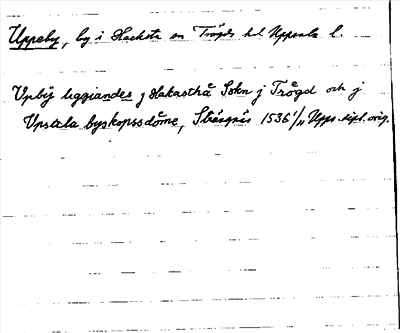 Uppeby, by i Hacksta sn Trögds hd Uppsala l.
Vpbÿ liggiandes j Hakasthå Sokn j Trögd och j
Vpsala byskopsdöme, Strängnäs 1536 1/11 Upps. dipl. orig.